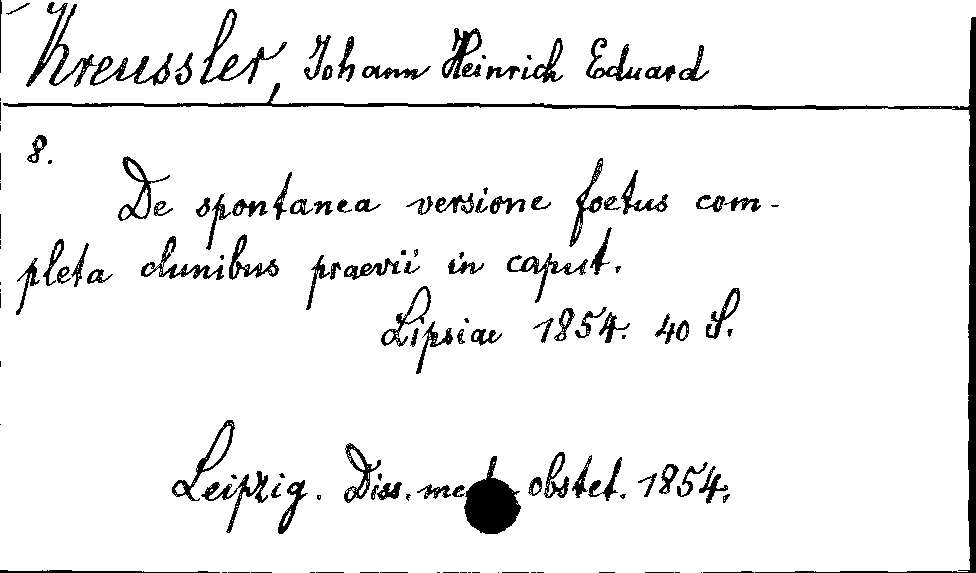 Kreussler, Johann Heinrich Eduard
8.
De spontanea versione foetus com-
pleta clunibus praevii in caput.
Lipsiae 1854. 40 S.
Leipzig. Diss. obstet. 1854.